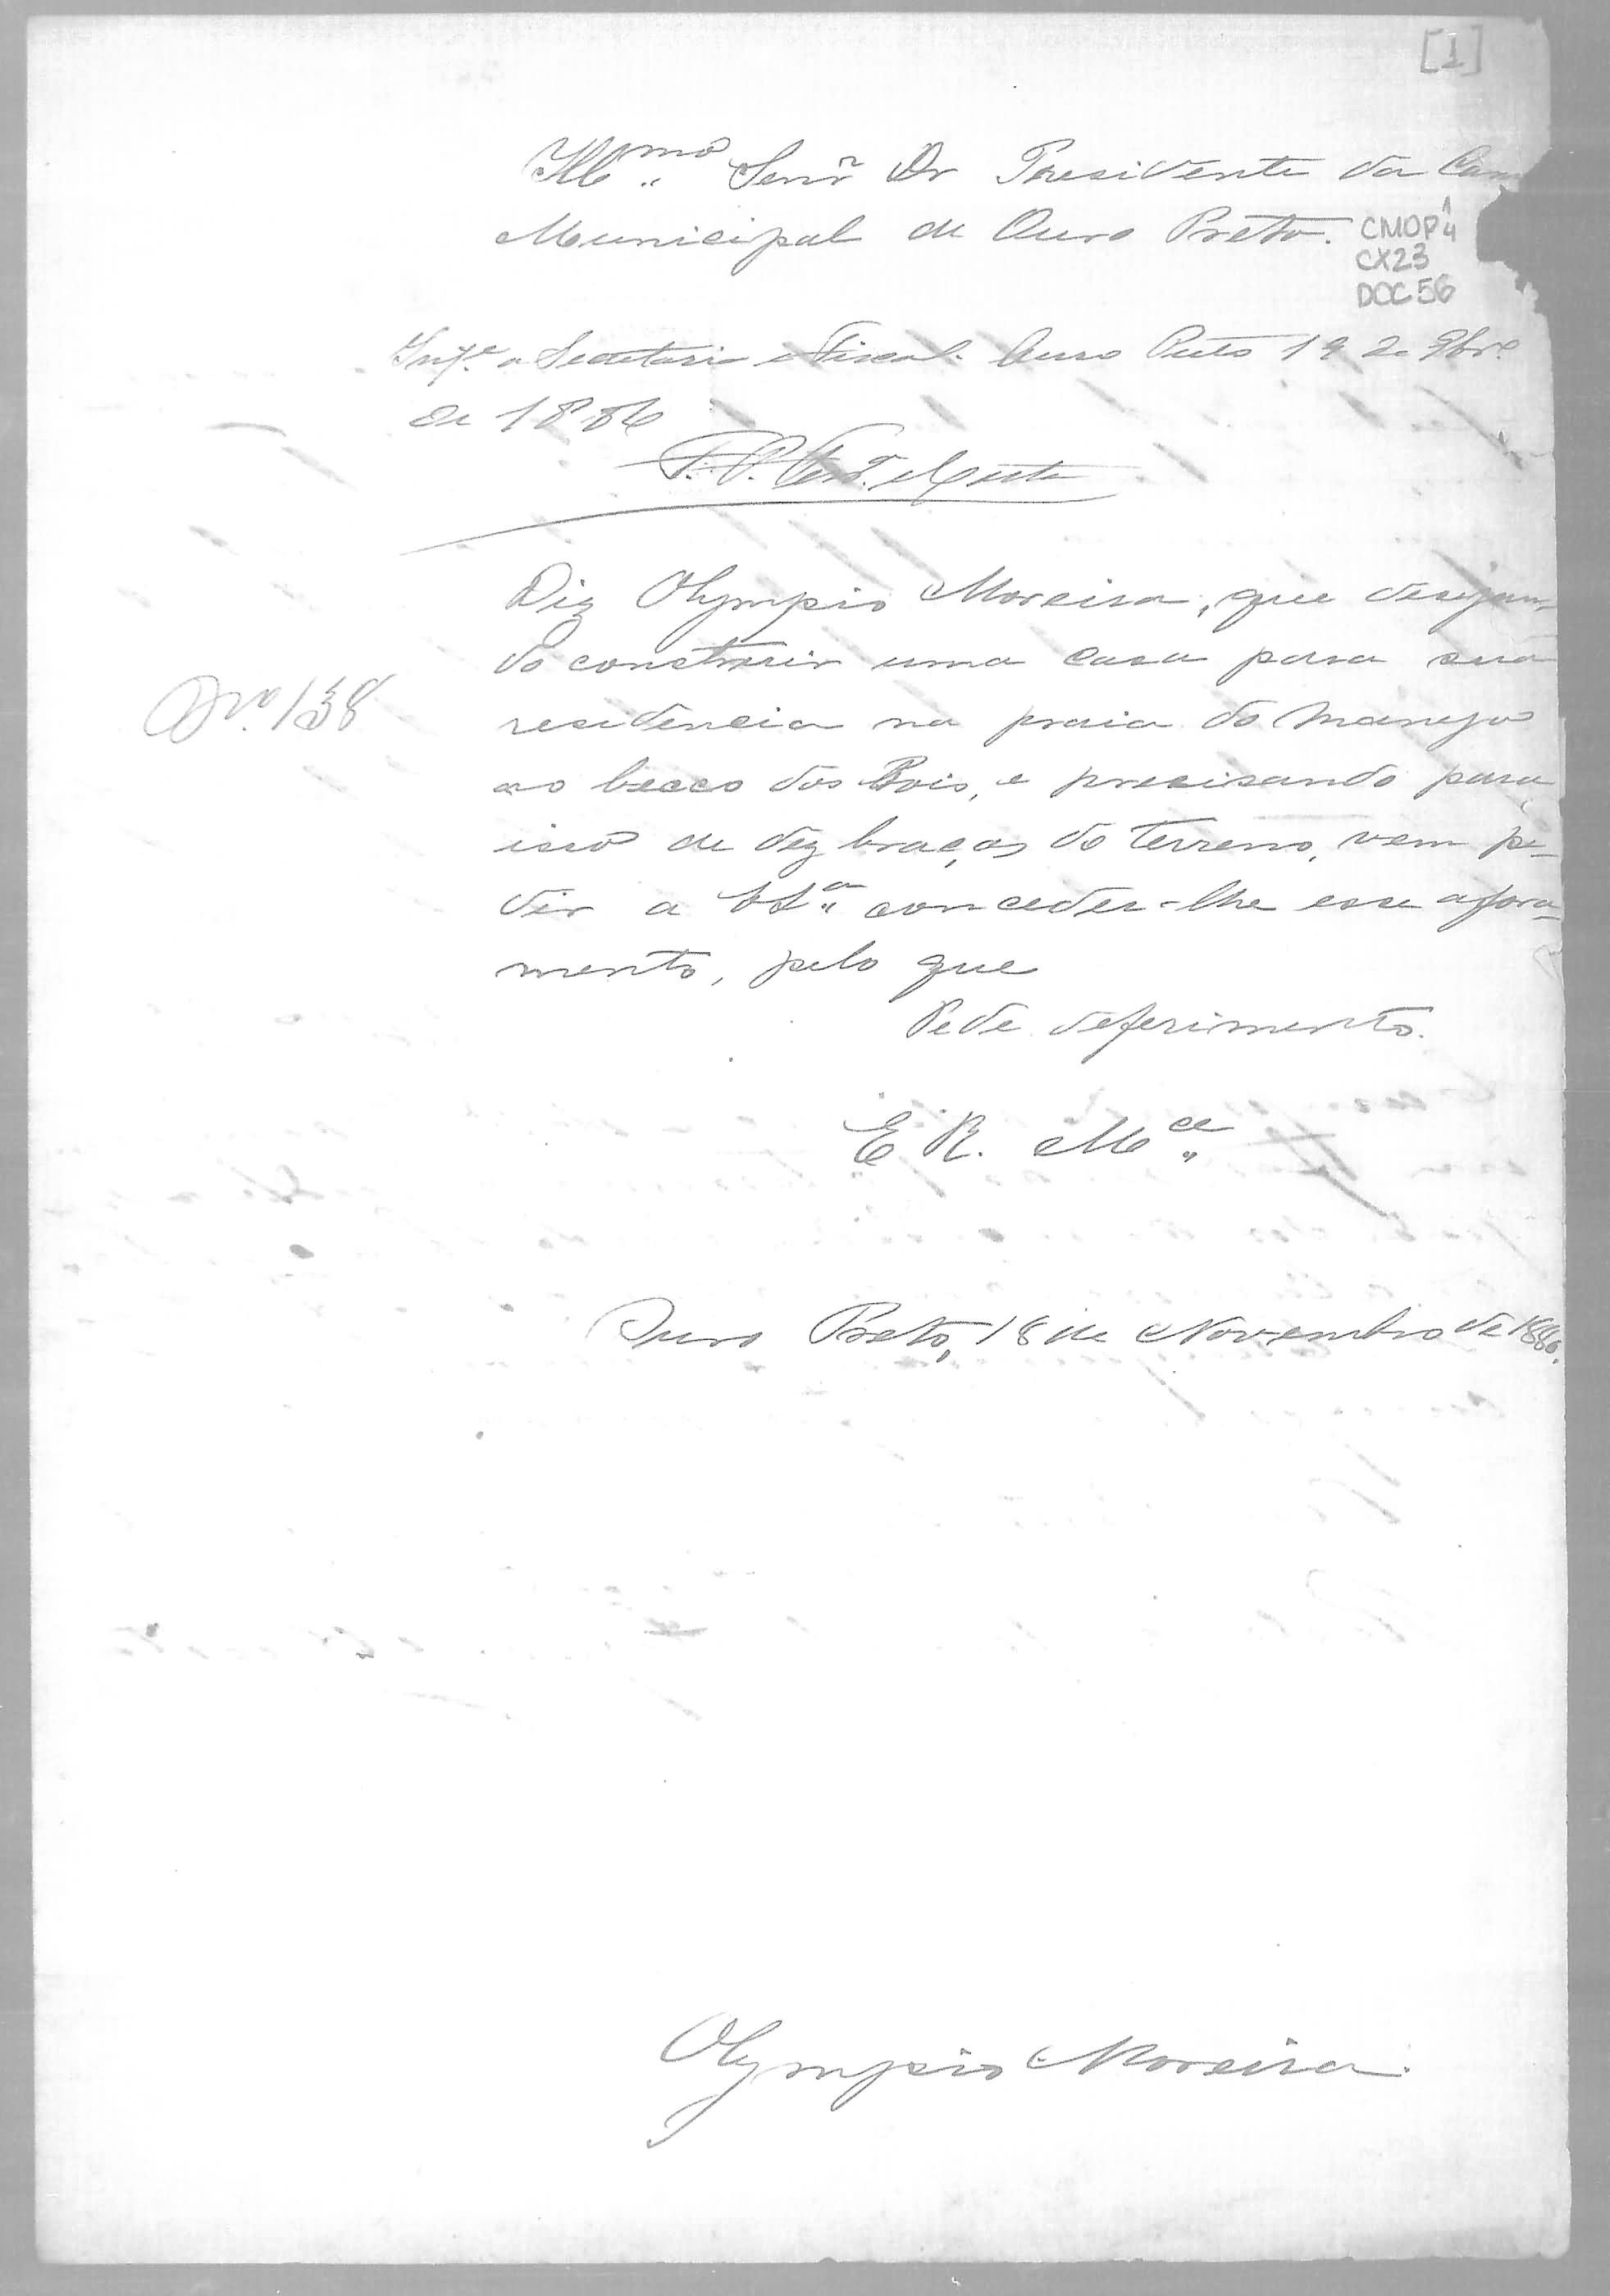 [1]
Illmo Senr Dr Presidente da Cam
Municipal de Ouro Preto.
CMOP 1/4
CX23
DOC 56
Infe a Secretaria e Fiscal. Ouro Preto 19 de 9bro
de 1886
Diz Olympio Moreira, que desejan-
do construir uma casa para sua
Nro. 138
residencia na praia do Manejo
ao becco dos Bois, e precisando para
isso de dez braças do terreno, vem pe-
dir a V Sa conceder-lhe esse afora-
mento, pelo que
Pede deferimento.
E R. Mce
Ouro Preto, 18 de Novembro de 1886.
Olympio Moreira.